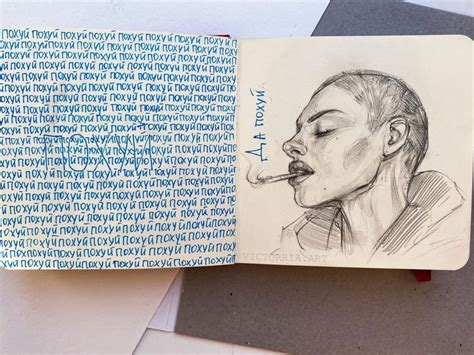 похуй похуй похуй похуй похуй похуй похуй похуй
похуй похуй похуй похуй похуй похуй похуй похуй
похуй похуй похуй похуй похуй похуй похуй похуй
похуй похуй похуй похуй похуй похуй похуй похуй
похуй похуй похуй похуй похуй похуй похуй похуй
похуй похуй похуй похуй похуй похуй похуй похуй
похуй похуй похуй похуй похуй похуй похуй похуй
похуй похуй похуй похуй похуй похуй похуй похуй
ПОХУЙ
похуй похуй похуй похуй похуй похуй похуй похуй
похуй похуй похуй похуй похуй похуй похуй похуй
похуй похуй похуй похуй похуй похуй похуй похуй
похуй похуй похуй похуй похуй похуй похуй похуй
похуй похуй похуй похуй похуй похуй похуй похуй
похуй похуй похуй похуй похуй похуй похуй похуй
похуй похуй похуй похуй похуй похуй похуй похуй
похуй похуй похуй похуй похуй похуй похуй похуй
Да похуй.
VICTORRIA.ART